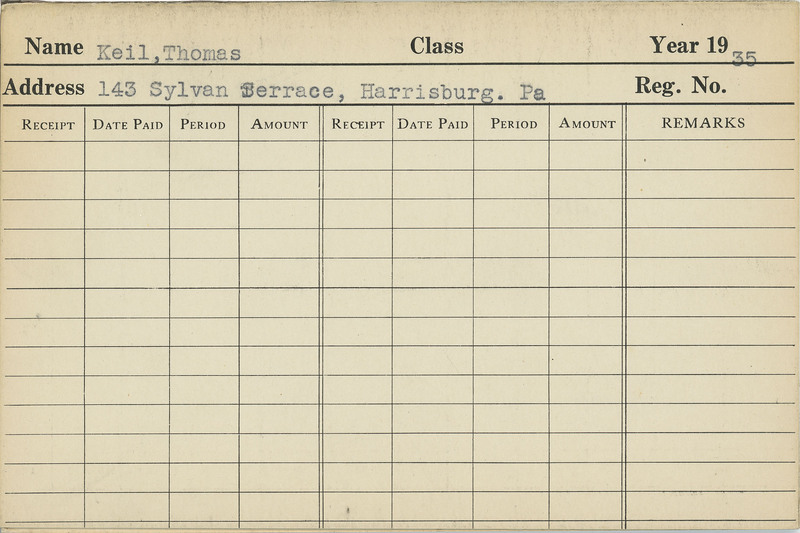 Name Keil,Thomas Class Year 19 35
Address 143 Sylvan Terrace, Harrisburg. Pa Reg. No.
RECEIPT DATE PAID PERIOD AMOUNT RECEIPT DATE PAID PERIOD AMOUNT REMARKS